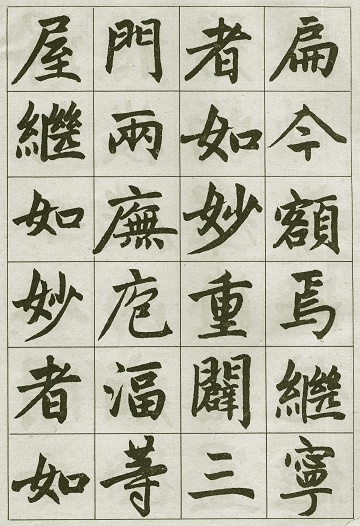 扁今額焉繼寧
者如妙重闢三
門兩廡庖湢等
屋繼如妙者如